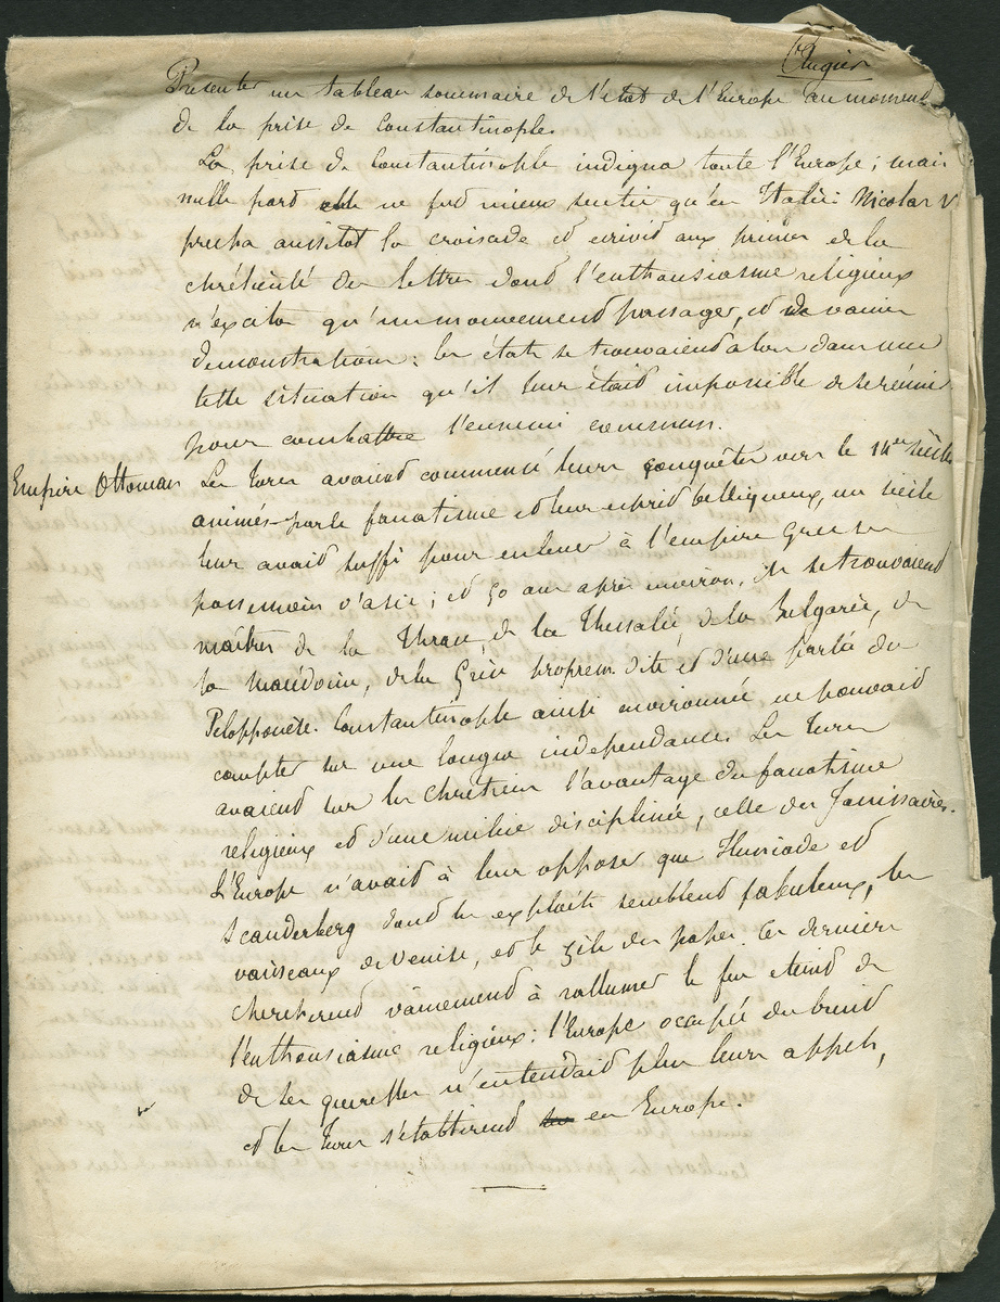 Augier
Presenter un tableau sommaire de l'etat de l'Europe au moment
de la prise de Constantinople.
La prise de Constantinople indigna toute l'Europe; mais
nulle part elle ne fut mieux sentie qu'en Italie. Nicolas V
precha aussitot la croisade et ecrivit aux princes de la
chrétienté des lettres dont l'enthousiasme religieux
n'excita qu'un mouvement passager, et de vaines
demonstrations: les états se trouvaient alors dans une
telle situation qu'il leur était impossible de se réunir
pour combattre l'ennemi commun.
Empire Ottoman
Les Turcs avaient commencé leurs conquêtes vers le 14me siècle
animés par le fanatisme et leur esprit belliqueux, un siècle
leur avait suffi pour enlever à l'empire Grec ses
possessions d'asie; et 50 ans après environ, ils se trouvaient
maîtres de la Thrace, de la Thessalie, de la Bulgarie, de
la Macédoine, de la Grèce proprem. dite et d'une partie du
Peloponnèse. Constantinople ainsi environnée ne pouvait
compter sur une longue independance. Les Turcs
avaient sur les Chretiens l'avantage du fanatisme
religieux et d'une milice disciplinée, celle des Janissaires.
L'Europe n'avait à leur opposer que Huniade et
Scanderberg dont les exploits semblent fabuleux, les
vaisseaux de Venise, et le zèle des papes. Ces derniers
cherchèrent vainement à rallumer le feu eteint de
l'enthousiasme religieux: l'Europe occupée du bruit
de ses querelles n'entendait plus leurs appels,
et les Turcs s'établirent en Europe.